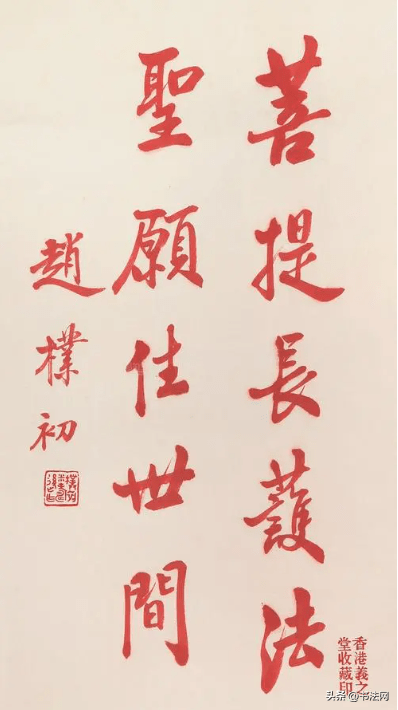 菩提長護法
聖願住世間
趙樸初
香港義之
堂收藏印
头条 @书法网